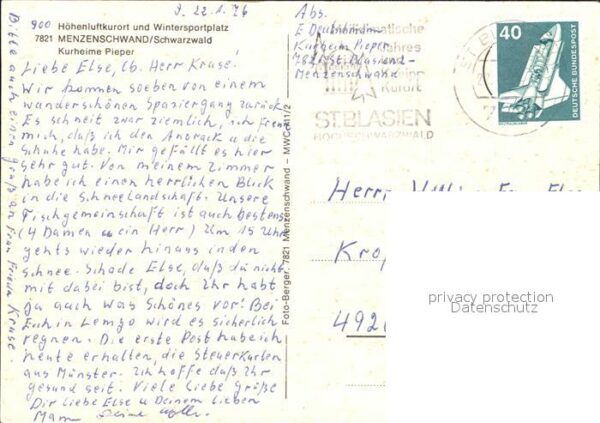 900 Höhenluftkurort und Wintersportplatz
7821 MENZENSCHWAND/Schwarzwald
Kurheime Pieper
22.1.76
Liebe Else, lb. Herr Krause!
Wir kommen soeben von einem
wunderschönen Spaziergang zurück.
Es schneit zwar ziemlich, ich freu
mich, daß ich den Anorack u die
Schuhe habe. Mir gefällt es hier
sehr gut. Von meinem Zimmer
habe ich einen herrlichen Blick
in die Schneelandschaft. Unsere
Tischgemeinschaft ist auch bestens
(4 Damen u ein Herr) Um 15 Uhr
gehts wieder hinaus in den
Schnee. Schade Else, daß du nicht
mit dabei bist, doch Ihr habt
ja auch was Schönes vor! Bei
Euch in Lemgo wird es sicherlich
regnen. Die erste Post habe ich
heute erhalten, die Steuerkarten
aus Münster. Ich hoffe daß Ihr
gesund seit. Viele liebe Grüße
Dir liebe Else u Deinem lieben
Mann Deine
Bitte auch einen Gruß an Frau Frieda Krause.
Foto-Berger, 7821 Menzenschwand - MWC 411/2
Abs.
Kurheim Pieper
7821 St. Blasien-
Menzenschwand
Kurort
ST. BLASIEN
HOCHSCHWARZWALD
40
DEUTSCHE BUNDESPOST
Herrn
492
privacy protection
Datenschutz